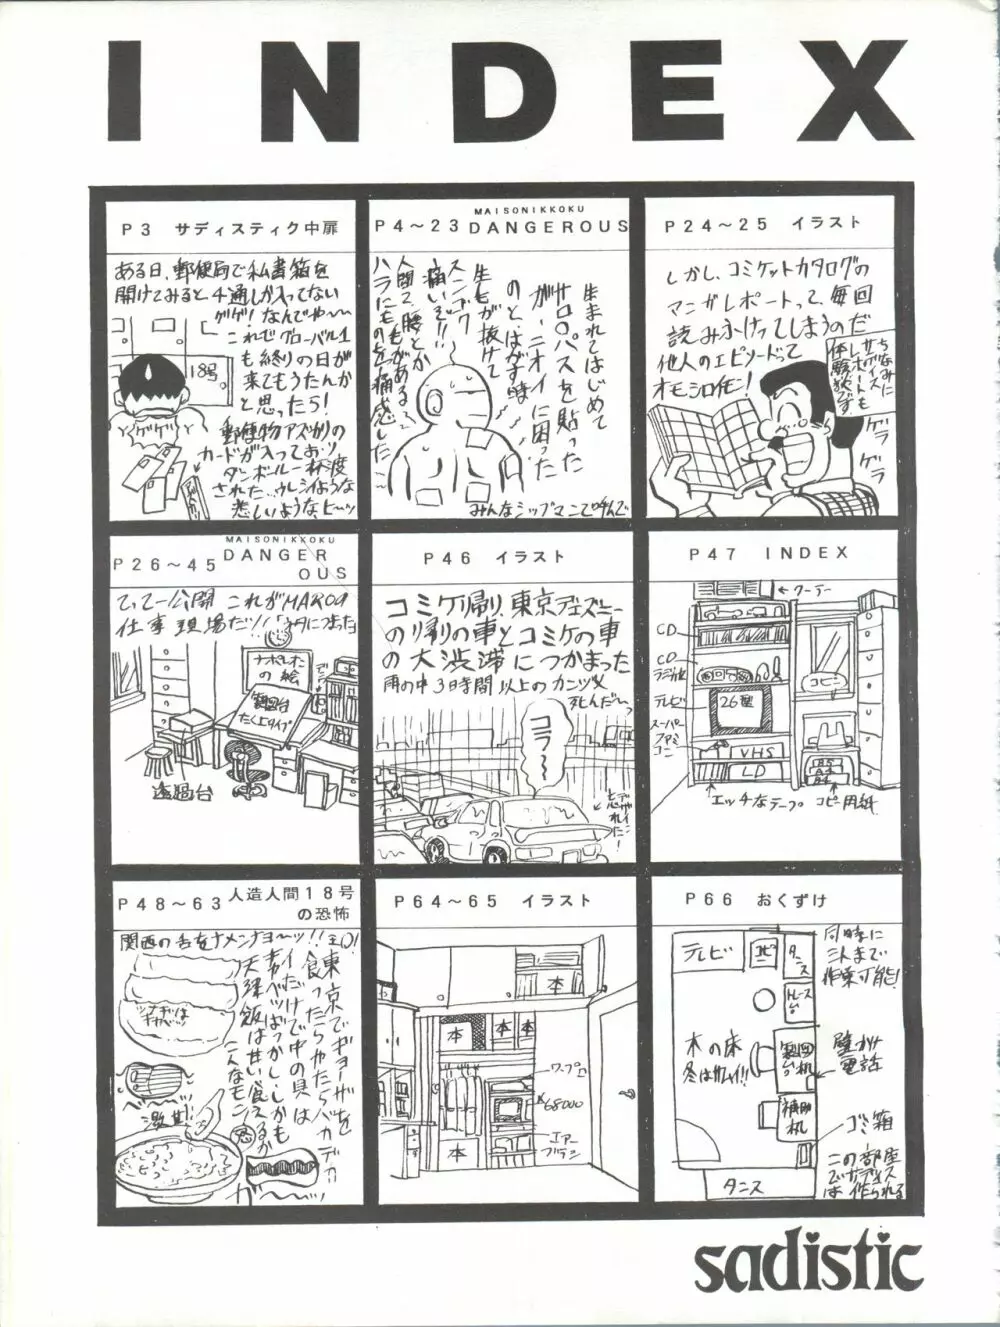 INDEX
P3 サディスティク中扉
ある日、郵便局で私書箱を
開けてみると、4通しか入ってない
ゲゲ!なんでや〜
これでグローバル1
も終りの日が
来てもうたんか
と思ったら!
郵便物アズカリの
カードが入っており
ダンボール一杯度
された、ウレシイような
悲しいような、ヒ〜ッ
18号
ゲゲゲ
P4〜23
MAISONIKKOKU
DANGEROUS
生まれてはじめて
サロンパスを貼った
が、ニオイに困った
のと・はがす時
生毛が抜けて
痛いぞ!!
人間て、腰とか
ハラにも
を痛感した〜
みんなシップマンニて呼んで
P24〜25 イラスト
しかし、コミケットカタログの
マンガレポートって、毎回
読みふけってしまうのだ
他人のエピソードって
オモシロイモン!
ちなみに
サディス
レポートも
体験談です
ゲラ
ゲラ
P26〜45
MAISONIKKOKU
DANGER
OUS
てってー公開 これがMAROの
仕事現場だッ!
ナオキしまいたの絵
製図台
たく上タイプ
透過台
P46 イラスト
コミケ帰り、東京ディズニー
の帰りの車とコミケの車
の大渋滞につかまった
雨の中3時間以上のカンヅメ
死んだ〜っ
コラ〜〜
P47 INDEX
クーラー
CD
CD
ラジカセ
テレビ
スーパー
ファミ
コン
26型
VHS
LD
コピー
B5
A4
B4
エッチなテープ
コピー用紙
P48〜63 人造人間18号
の恐怖
関西の舌をナメンナヨ〜ッ!!
東京でギョーザを
食ったらやたらバカデカ
イだけで中の具は
キャベツばっかし、しかも
天津飯は甘い食えるか
こんなモン
激甘
P64〜65 イラスト
本
本
本
本
本
ワープロ
X68000
エアー
ブラシ
P66 おくずけ
テレビ
コピー
タンス
トレース台
製図台
机
補助
机
木の床
冬はサムイ!!
タンス
同時に
三人まで
作業可能!
壁かけ
電話
ゴミ箱
この部屋
でサディス
は作られる
sadistic